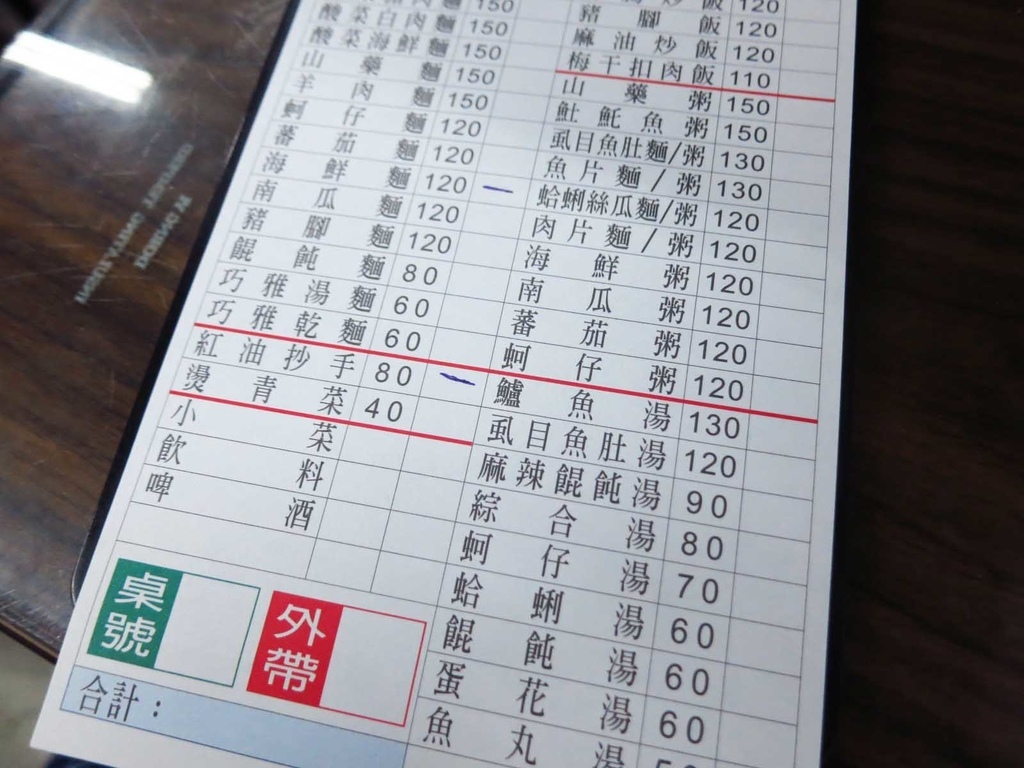 肉麵 150
酸菜白肉麵 150
酸菜海鮮麵 150
山藥麵 150
羊肉麵 150
蚵仔麵 120
蕃茄麵 120
海鮮麵 120
南瓜麵 120
豬腳麵 120
餛飩麵 80
巧雅湯麵 60
巧雅乾麵 60
紅油抄手 80
燙青菜 40
小菜
飲料
啤酒
桌號
外帶
合計：
炒飯 120
豬腳飯 120
麻油炒飯 120
梅干扣肉飯 110
山藥粥 150
魠魚粥 150
虱目魚肚麵/粥 130
魚片麵/粥 130
蛤蜊絲瓜麵/粥 120
肉片麵/粥 120
海鮮粥 120
南瓜粥 120
蕃茄粥 120
蚵仔粥 120
鱸魚湯 130
虱目魚肚湯 120
麻辣餛飩湯 90
綜合湯 80
蚵仔湯 70
蛤蜊湯 60
餛飩湯 60
蛋花湯 60
魚丸湯